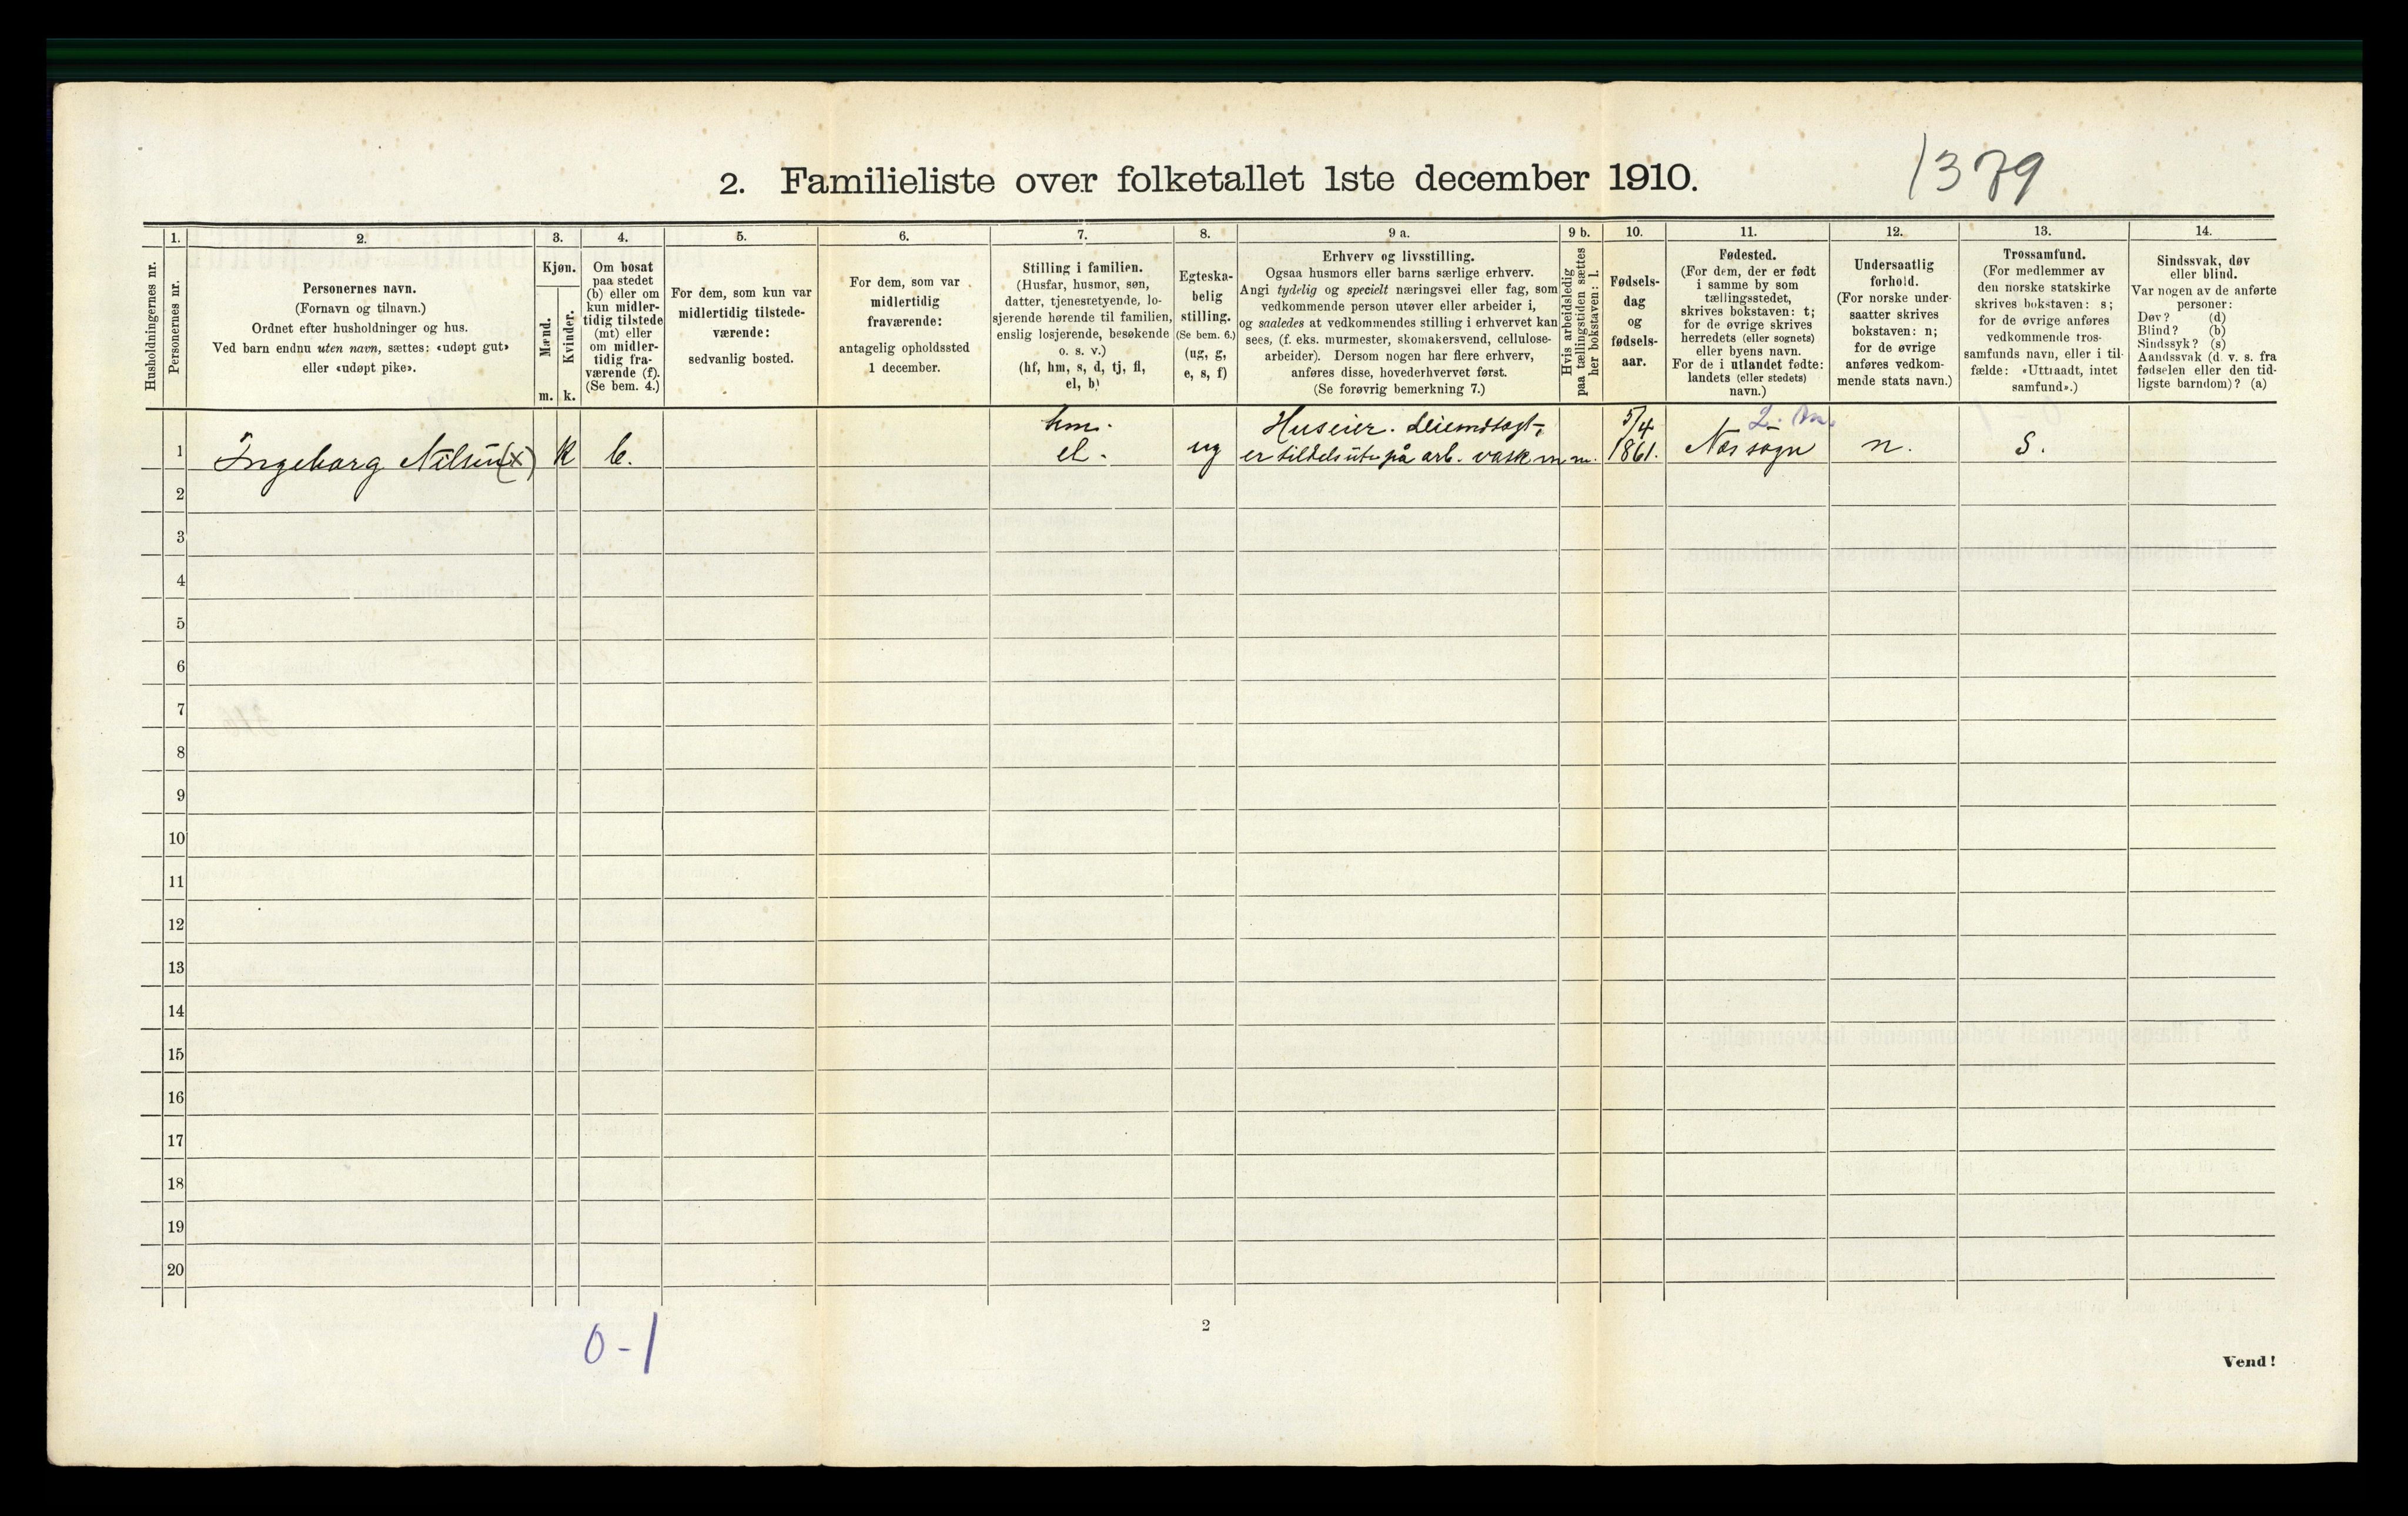 2. Familieliste over folketallet 1ste december 1910.
1379
Husholdningernes nr.
1.
Personernes nr.
2.
Personernes navn.
(Fornavn og tilnavn.)
Ordnet efter husholdninger og hus.
Ved barn endnu uten navn, sættes: «udøpt gut»
eller «udøpt pike».
3.
Kjøn.
Mænd.
Kvinder.
m. k.
4.
Om bosat
paa stedet
(b) eller om
kun midler-
tidig tilstede
(mt) eller
om midler-
tidig fra-
værende (f).
(Se bem. 4.)
5.
For dem, som kun var
midlertidig tilstede-
værende:
sedvanlig bosted.
6.
For dem, som var
midlertidig
fraværende:
antagelig opholdssted
1 december.
7.
Stilling i familien.
(Husfar, husmor, søn,
datter, tjenestetyende, lo-
sjerende hørende til familien,
enslig losjerende, besøkende
o. s. v.)
(hf, hm, s, d, tj, fl,
el, b)
8.
Egteska-
belig
stilling.
(Se bem. 6.)
(ug, g,
e, s, f)
9 a.
Erhverv og livsstilling.
Ogsaa husmors eller barns særlige erhverv.
Angi tydelig og specielt næringsvei eller fag, som
vedkommende person utøver eller arbeider i,
og saaledes at vedkommendes stilling i erhvervet kan
sees, (f. eks. murmester, skomakersvend, cellulose-
arbeider). Dersom nogen har flere erhverv,
anføres disse, hovederhvervet først.
(Se forøvrig bemerkning 7.)
9 b.
Hvis arbeidsledig
paa tællingstiden sættes
her bokstaven: l.
10.
Fødsels-
dag
og
fødsels-
aar.
11.
Fødested.
(For dem, der er født
i samme by som
tællingsstedet,
skrives bokstaven: t;
for de øvrige skrives
herredets (eller sognets)
eller byens navn.
For de i utlandet fødte:
landets (eller stedets)
navn.)
12.
Undersaatlig
forhold.
(For norske under-
saatter skrives
bokstaven: n;
for de øvrige
anføres vedkom-
mende stats navn.)
13.
Trossamfund.
(For medlemmer av
den norske statskirke
skrives bokstaven: s;
for de øvrige anføres
vedkommende tros-
samfunds navn, eller i til-
fælde: «Uttraadt, intet
samfund».)
14.
Sindssvak, døv
eller blind.
Var nogen av de anførte
personer:
Døv? (d)
Blind? (b)
Sindssyk? (s)
Aandssvak (d. v. s. fra
fødselen eller den tid-
ligste barndom)? (a)
hm. Huseier. 5/4
1 Ingeborg Nilsen (x) k b. el. ug er tildels ute på arb. vask m.m. 1861. Nes sogn n. s.
2
3
4
5
6
7
8
9
10
11
12
13
14
15
16
17
18
19
20
0-1
2
Vend!